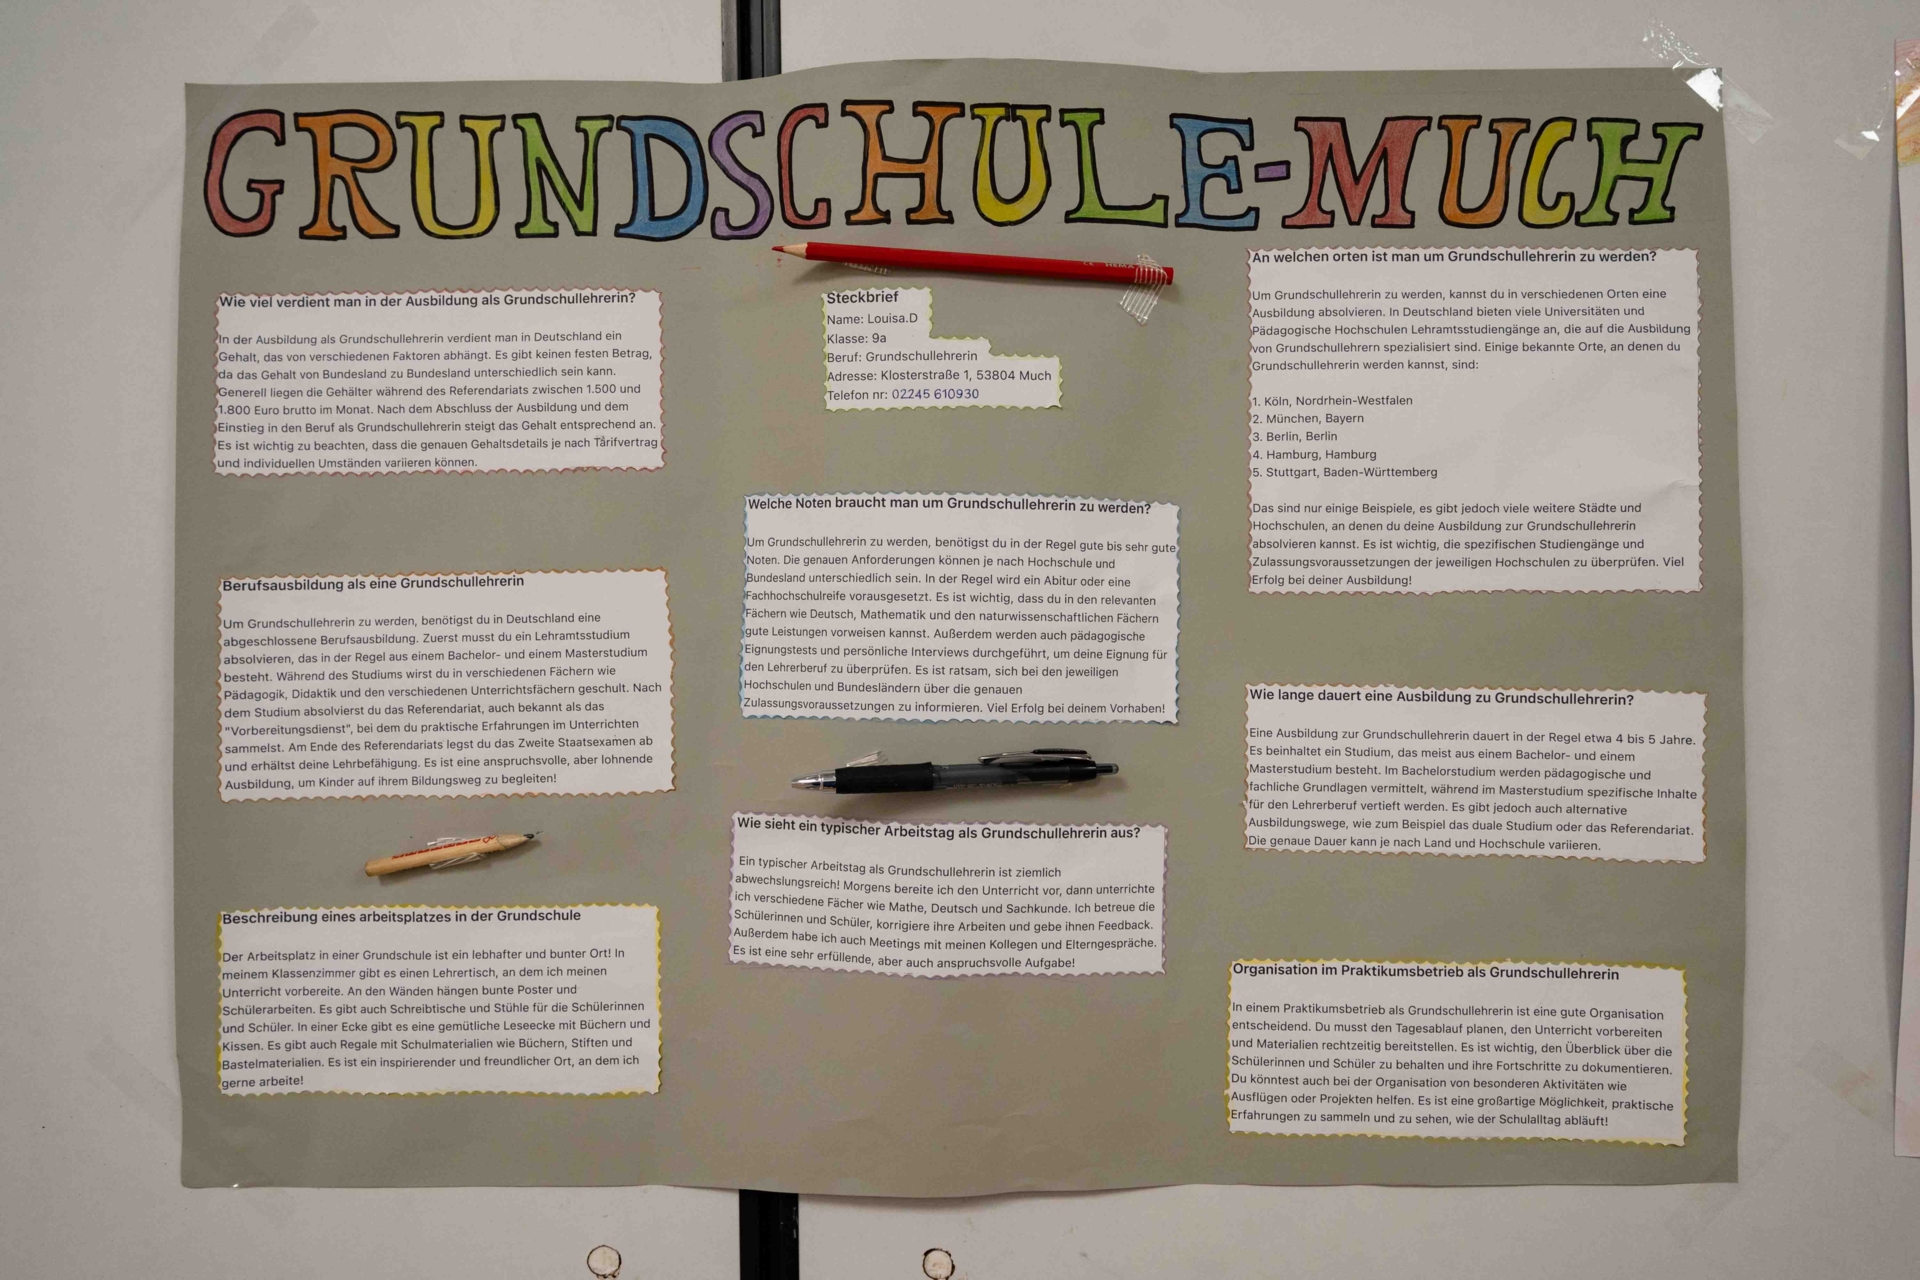 GRUNDSCHULE-MUCH
Wie viel verdient man in der Ausbildung als Grundschullehrerin?
In der Ausbildung als Grundschullehrerin verdient man in Deutschland ein
Gehalt, das von verschiedenen Faktoren abhängt. Es gibt keinen festen Betrag,
da das Gehalt von Bundesland zu Bundesland unterschiedlich sein kann.
Generell liegen die Gehälter während des Referendariats zwischen 1.500 und
1.800 Euro brutto im Monat. Nach dem Abschluss der Ausbildung und dem
Einstieg in den Beruf als Grundschullehrerin steigt das Gehalt entsprechend an.
Es ist wichtig zu beachten, dass die genauen Gehaltsdetails je nach Tarifvertrag
und individuellen Umständen variieren können.
Berufsausbildung als eine Grundschullehrerin
Um Grundschullehrerin zu werden, benötigst du in Deutschland eine
abgeschlossene Berufsausbildung. Zuerst musst du ein Lehramtsstudium
absolvieren, das in der Regel aus einem Bachelor- und einem Masterstudium
besteht. Während des Studiums wirst du in verschiedenen Fächern wie
Pädagogik, Didaktik und den verschiedenen Unterrichtsfächern geschult. Nach
dem Studium absolvierst du das Referendariat, auch bekannt als das
"Vorbereitungsdienst", bei dem du praktische Erfahrungen im Unterrichten
sammelst. Am Ende des Referendariats legst du das Zweite Staatsexamen ab
und erhältst deine Lehrbefähigung. Es ist eine anspruchsvolle, aber lohnende
Ausbildung, um Kinder auf ihrem Bildungsweg zu begleiten!
Beschreibung eines arbeitsplatzes in der Grundschule
Der Arbeitsplatz in einer Grundschule ist ein lebhafter und bunter Ort! In
meinem Klassenzimmer gibt es einen Lehrertisch, an dem ich meinen
Unterricht vorbereite. An den Wänden hängen bunte Poster und
Schülerarbeiten. Es gibt auch Schreibtische und Stühle für die Schülerinnen
und Schüler. In einer Ecke gibt es eine gemütliche Leseecke mit Büchern und
Kissen. Es gibt auch Regale mit Schulmaterialien wie Büchern, Stiften und
Bastelmaterialien. Es ist ein inspirierender und freundlicher Ort, an dem ich
gerne arbeite!
Steckbrief
Name: Louisa.D
Klasse: 9a
Beruf: Grundschullehrerin
Adresse: Klosterstraße 1, 53804 Much
Telefon nr: 02245 610930
Welche Noten braucht man um Grundschullehrerin zu werden?
Um Grundschullehrerin zu werden, benötigst du in der Regel gute bis sehr gute
Noten. Die genauen Anforderungen können je nach Hochschule und
Bundesland unterschiedlich sein. In der Regel wird ein Abitur oder eine
Fachhochschulreife vorausgesetzt. Es ist wichtig, dass du in den relevanten
Fächern wie Deutsch, Mathematik und den naturwissenschaftlichen Fächern
gute Leistungen vorweisen kannst. Außerdem werden auch pädagogische
Eignungstests und persönliche Interviews durchgeführt, um deine Eignung für
den Lehrerberuf zu überprüfen. Es ist ratsam, sich bei den jeweiligen
Hochschulen und Bundesländern über die genauen
Zulassungsvoraussetzungen zu informieren. Viel Erfolg bei deinem Vorhaben!
Wie sieht ein typischer Arbeitstag als Grundschullehrerin aus?
Ein typischer Arbeitstag als Grundschullehrerin ist ziemlich
abwechslungsreich! Morgens bereite ich den Unterricht vor, dann unterrichte
ich verschiedene Fächer wie Mathe, Deutsch und Sachkunde. Ich betreue die
Schülerinnen und Schüler, korrigiere ihre Arbeiten und gebe ihnen Feedback.
Außerdem habe ich auch Meetings mit meinen Kollegen und Elterngespräche.
Es ist eine sehr erfüllende, aber auch anspruchsvolle Aufgabe!
An welchen orten ist man um Grundschullehrerin zu werden?
Um Grundschullehrerin zu werden, kannst du in verschiedenen Orten eine
Ausbildung absolvieren. In Deutschland bieten viele Universitäten und
Pädagogische Hochschulen Lehramtsstudiengänge an, die auf die Ausbildung
von Grundschullehrern spezialisiert sind. Einige bekannte Orte, an denen du
Grundschullehrerin werden kannst, sind:
1. Köln, Nordrhein-Westfalen
2. München, Bayern
3. Berlin, Berlin
4. Hamburg, Hamburg
5. Stuttgart, Baden-Württemberg
Das sind nur einige Beispiele, es gibt jedoch viele weitere Städte und
Hochschulen, an denen du deine Ausbildung zur Grundschullehrerin
absolvieren kannst. Es ist wichtig, die spezifischen Studiengänge und
Zulassungsvoraussetzungen der jeweiligen Hochschulen zu überprüfen. Viel
Erfolg bei deiner Ausbildung!
Wie lange dauert eine Ausbildung zu Grundschullehrerin?
Eine Ausbildung zur Grundschullehrerin dauert in der Regel etwa 4 bis 5 Jahre.
Es beinhaltet ein Studium, das meist aus einem Bachelor- und einem
Masterstudium besteht. Im Bachelorstudium werden pädagogische und
fachliche Grundlagen vermittelt, während im Masterstudium spezifische Inhalte
für den Lehrerberuf vertieft werden. Es gibt jedoch auch alternative
Ausbildungswege, wie zum Beispiel das duale Studium oder das Referendariat.
Die genaue Dauer kann je nach Land und Hochschule variieren.
Organisation im Praktikumsbetrieb als Grundschullehrerin
In einem Praktikumsbetrieb als Grundschullehrerin ist eine gute Organisation
entscheidend. Du musst den Tagesablauf planen, den Unterricht vorbereiten
und Materialien rechtzeitig bereitstellen. Es ist wichtig, den Überblick über die
Schülerinnen und Schüler zu behalten und ihre Fortschritte zu dokumentieren.
Du könntest auch bei der Organisation von besonderen Aktivitäten wie
Ausflügen oder Projekten helfen. Es ist eine großartige Möglichkeit, praktische
Erfahrungen zu sammeln und zu sehen, wie der Schulalltag abläuft!